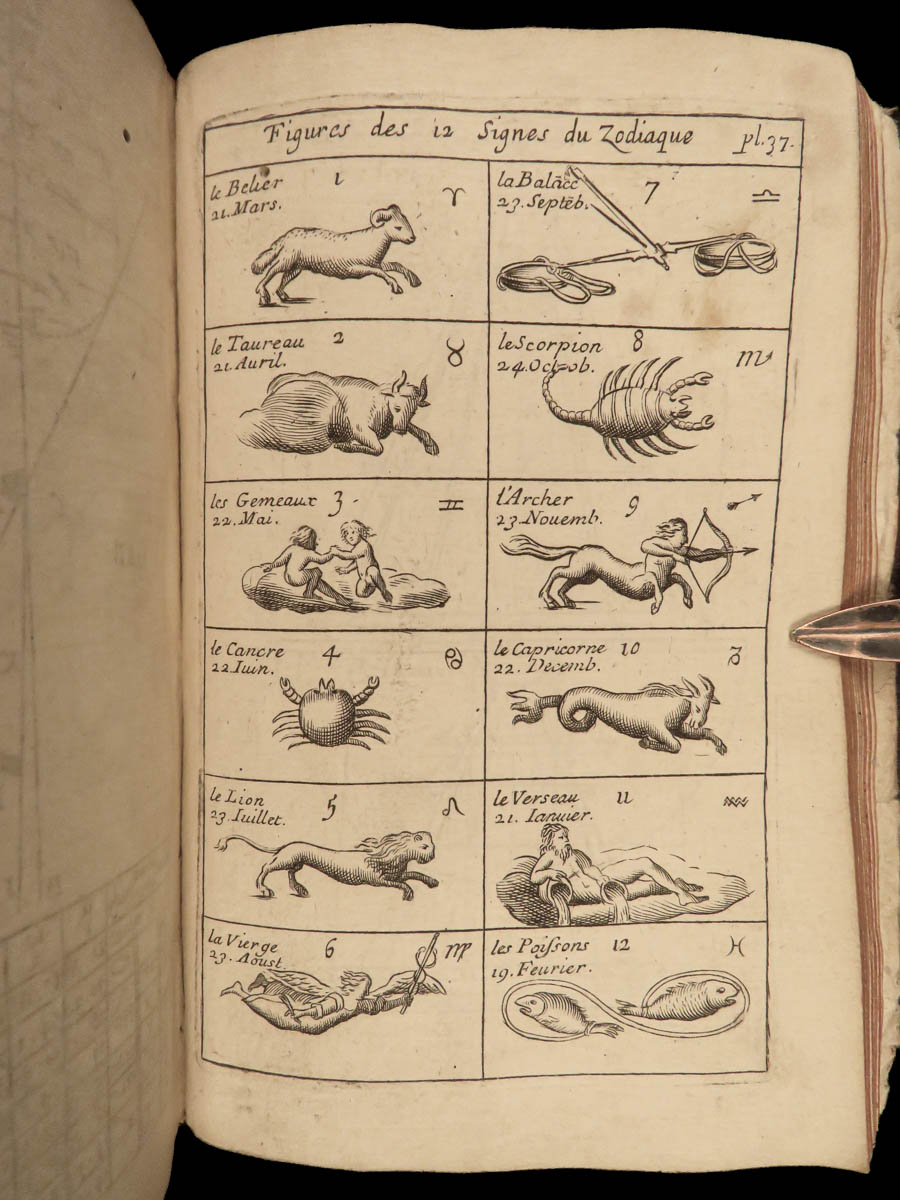 Figures des 12 Signes du Zodiaque pl.37.
le Belier 1 ♈
21. Mars.
le Taureau 2 ♉
21. Auril.
les Gemeaux 3 ♊
22. Mai.
le Cancre 4 ♋
22. Iuin.
le Lion 5 ♌
23. Iuillet.
la Vierge 6 ♍
23. Aoust.
la Balãce 7 ♎
23. Septẽb.
le Scorpion 8 ♏
24. Octob.
l'Archer 9 ♐
23. Nouemb.
le Capricorne 10 ♑
22. Decemb.
le Verseau 11 ♒
21. Ianuier.
les Poiſsons 12 ♓
19. Feurier.